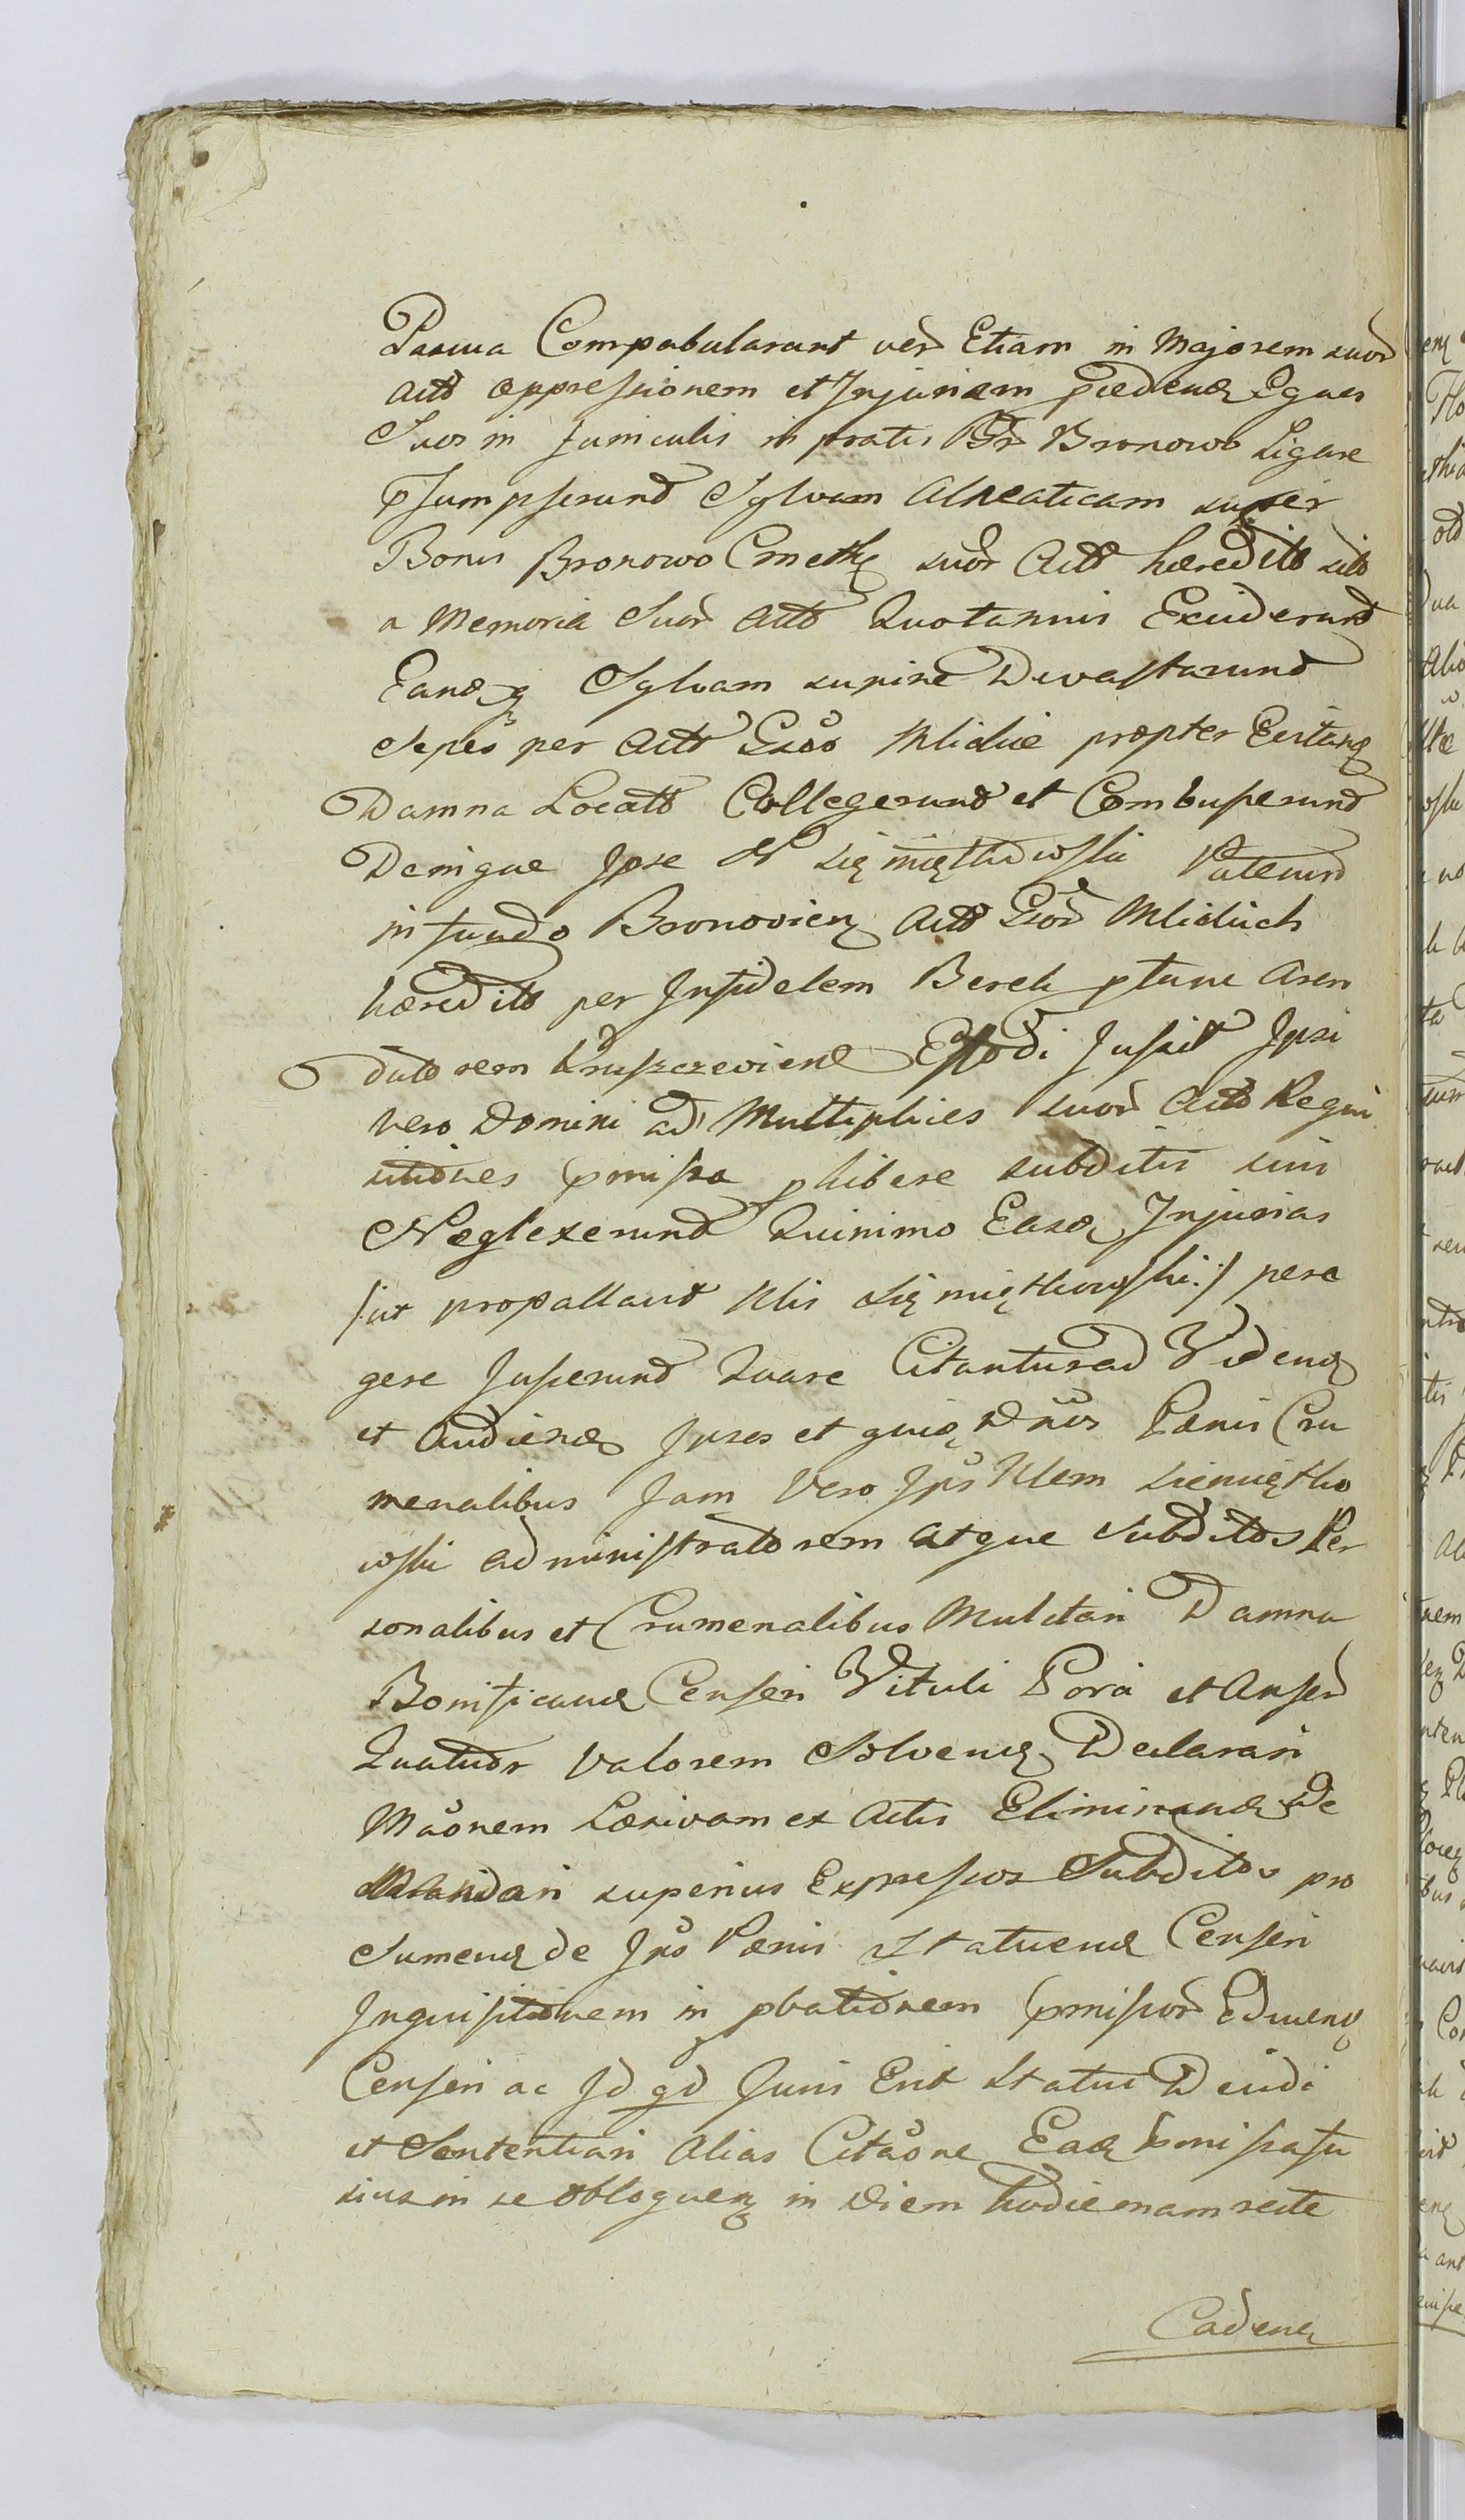 Pascua Compabularunt ver Etiam in Majorem suor
Actt oppressionem et Injuriam pcedend Equos
Suos in funiculis in pratis Br Bronowo Ligare
psumpserunt Sylvam Alneaticam super
Bonis Bronowo Cmeth suor Actt hæreditt sitt
a Memoria Suor Actt Quotannis Exciderunt
Eandq Sylvam supine Devastarunt
Sepes per Actt Gsos Mlickie propter Evitand
Damna Locatt Collegerunt et Combuserunt
Denique Ipse N Siemiętkowski Puteum
in fundo Bronovien Actt Gsor Mlickich
hæreditt per Infidelem Berek ptunc Aren
datorem Kruszeviens Effodi Jussit Ipsi
vero Domini ad Multiplices suor Actt Requi
sitiones pmissa phibere subditis suis
Neglexerunt Quinimo Easd Injurias
/:ut propallant Nlis Siemiętkowski:/ pera
gere Jusserunt Quare Citantur ad Vidend
et Audiend Ipsos et quid Dnos Pœnis Cru
menalibus Jam Vero Ips Nlem Siemiętko
wski administratorem atque Subditos Per
sonalibus et Crumenalibus Mulctari Damna
Bonificand Censeri Vituli Porci et Anser
Quatuor Valorem Solvend Declarari
Maonem Læsivam ex Actis Eliminand De
Mandari superius Expressos Subditos pro
Sumend de Ips Pœnis Statuend Censeri
Inquisitionem in pbationem pmissor Educend
Censeri ac Id qd Juris Erit Statui Decidi
et Sententiari Alias Citaone Ead pmissa fu
sius in se obloquen in Diem hodiernam recte
Caden